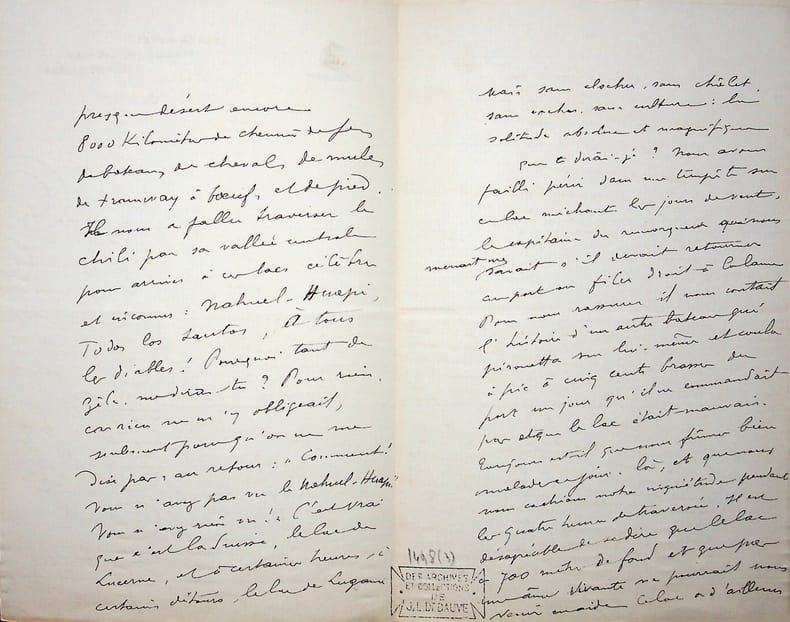 presque désert encore
8000 Kilomètres de chemin de fer,
de bateau, de cheval, de mules
de tramway à bœufs, et de pied.
Il nous a fallu traverser le
Chili par sa vallée centrale
pour arriver à ces lacs célèbres
et inconnus : Nahuel-Huapi,
Todos los Santos, et tous
les diables ! Pourquoi tant de
zèle, me diras-tu ? Pour rien,
car rien ne m'y obligeait,
seulement pour qu'on ne me
dise pas au retour : "Comment !
Vous n'avez pas vu le Nahuel-Huapi
Vous n'avez rien vu !" C'est vrai
que c'est la Suisse, le lac de
Lucerne, et à certaines heures, à
certains détours, le lac de Lugano
Mais sans clocher, sans châlet,
sans vaches, sans culture : la
solitude absolue et magnifique
Que te dirai-je ? Nous avons
failli périr dans une tempête sur
ce lac méchant les jours de vent.
le capitaine du remorqueur qui nous
menait ne savait s'il devait retourner
au port ou filer droit à
Pour nous rassurer il nous contait
l'histoire d'un autre bateau qui
pirouetta sur lui-même et coula
à pic à cinq cents brasses du
port un jour qu'il ne commandait
pas et que le lac était mauvais.
Toujours est-il que nous fûmes bien
malades ce jour-là, et que nous
nous cachions notre inquiétude pendant
les quatre heures de traversée. Il est
désagréable de se dire que le lac
a 700 mètres de fond et que pas
une âme vivante ne pourrait nous
venir en aide. Ce lac a d'ailleurs
1498(3)
DES ARCHIVES
ET COLLECTIONS
DE
J.L. DEBAUVE